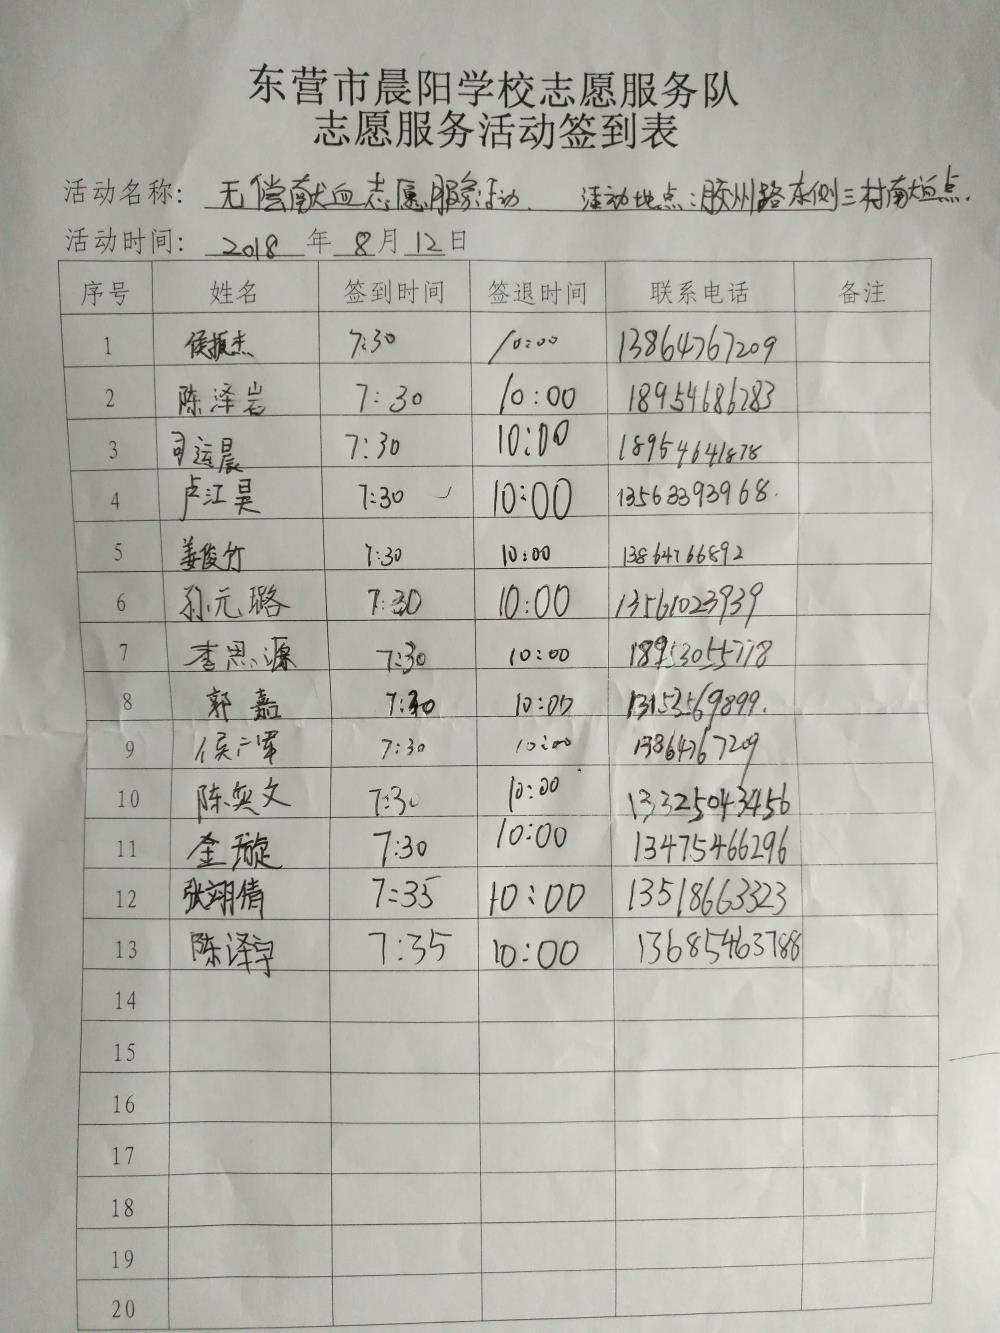 东营市晨阳学校志愿服务队
志愿服务活动签到表
活动名称: 无偿献血志愿服务活动. 活动地点:胶州路东侧三村献血点.
活动时间: 2018 年 8 月 12 日
序号 姓名 签到时间 签退时间 联系电话 备注
1 侯振杰 7:30 10:00 13864767209
2 陈泽岩 7:30 10:00 18954686283
3 司运晨 7:30 10:00 18954641878
4 卢江昊 7:30 10:00 13563393968.
5 姜俊竹 7:30 10:00 13864766892
6 孙元璐 7:30 10:00 13561023939
7 李思源 7:30 10:00 18953055778
8 郭嘉 7:30 10:00 13153569899.
9 侯广军 7:30 10:00 13864767209
10 陈奕文 7:30 10:00 13325043456
11 金璇 7:30 10:00 13475466296
12 张翊倩 7:35 10:00 13518663323
13 陈泽宇 7:35 10:00 13685463788
14
15
16
17
18
19
20